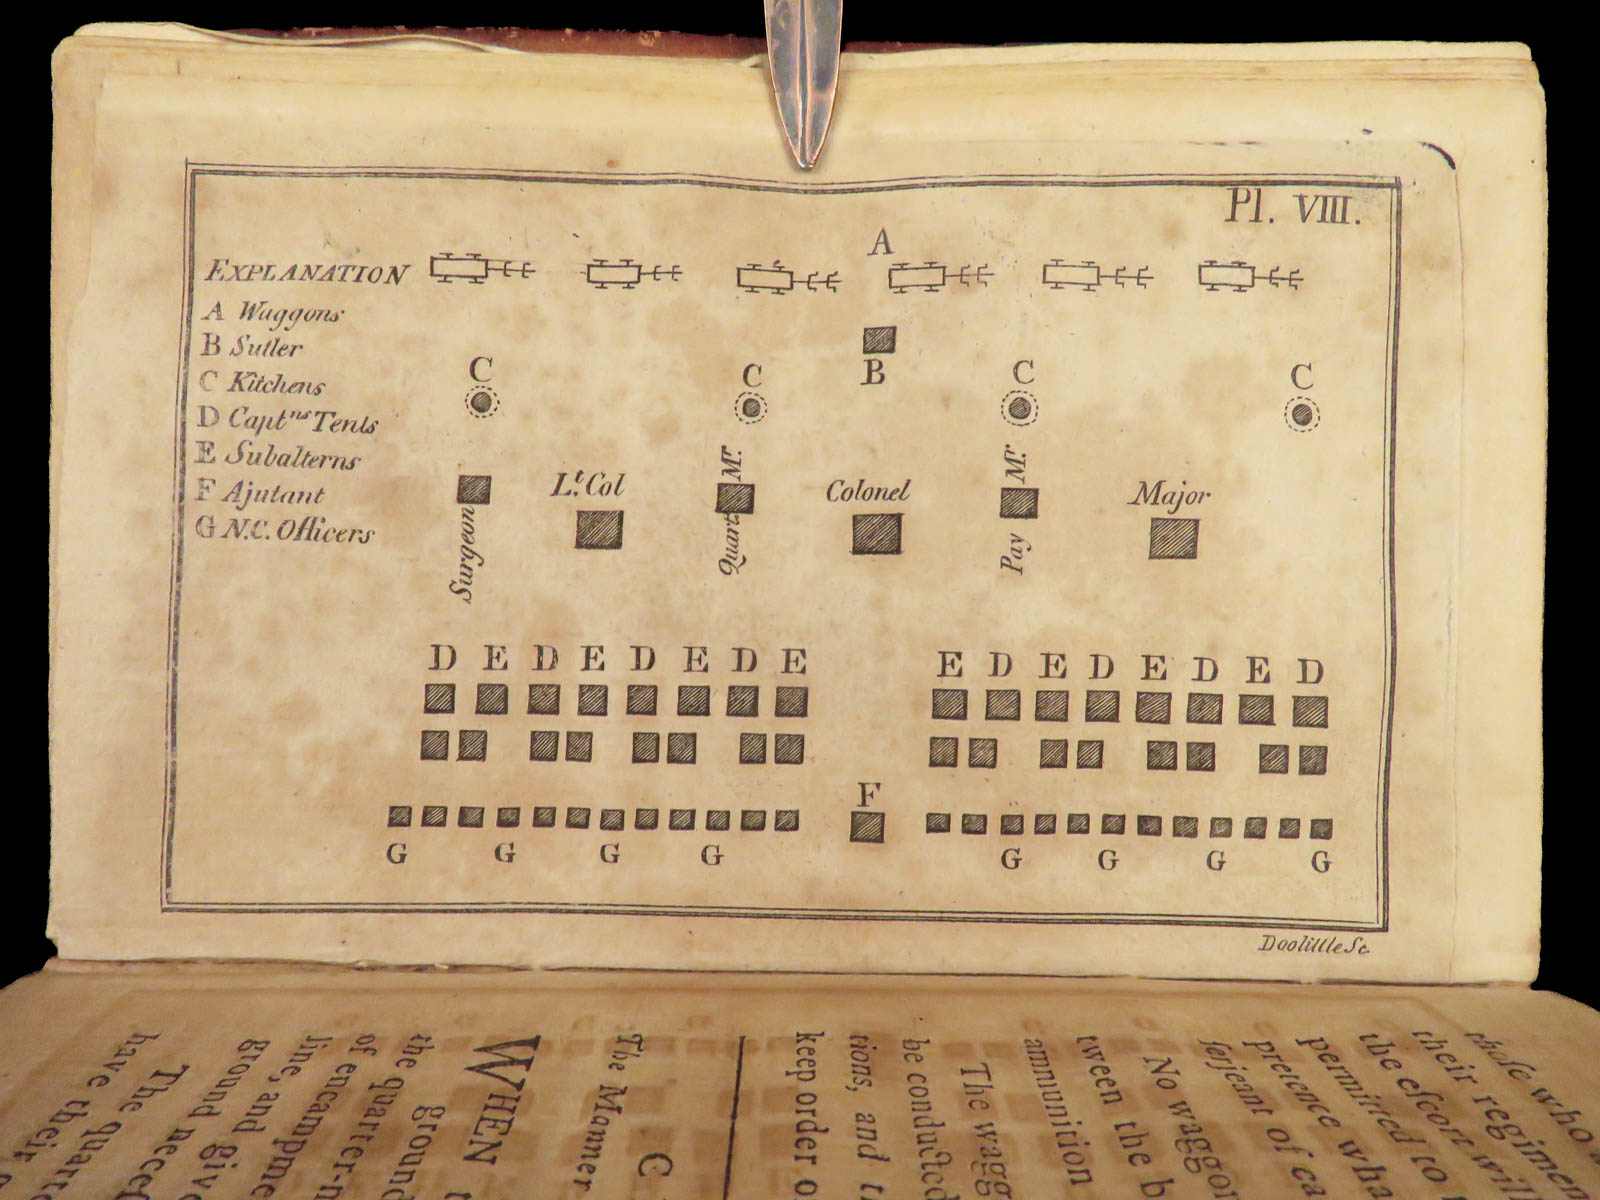 Pl. VIII.
A
EXPLANATION
A Waggons
B Sutler
C Kitchens
D Captns Tents
E Subalterns
F Ajutant
G N.C. Officers
B
C C C C
Surgeon
Lt. Col
Quart. Mr.
Colonel
Pay Mr.
Major
D E D E D E D E E D E D E D E D
F
G G G G G G G G
Doolittle Sc.
thoſe who
their regimen
the eſcort will
permitted to
pretence wha
ſerjeant of ca
No waggon
tween the b
ammunition
The wagg
be conducted
tions, and
keep order o
C
The Manner
WHEN
the quarter-m
of encampme
line, and give
ground necce
The quarte
have their